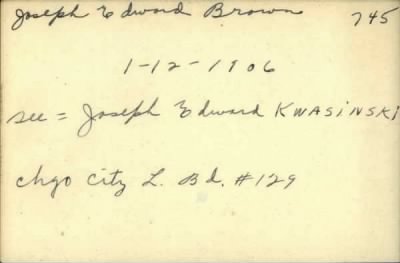 Joseph Edward Brown 745
1-12-1906
see = Joseph Edward KWASiNSKi
chgo city L. Bd. #129